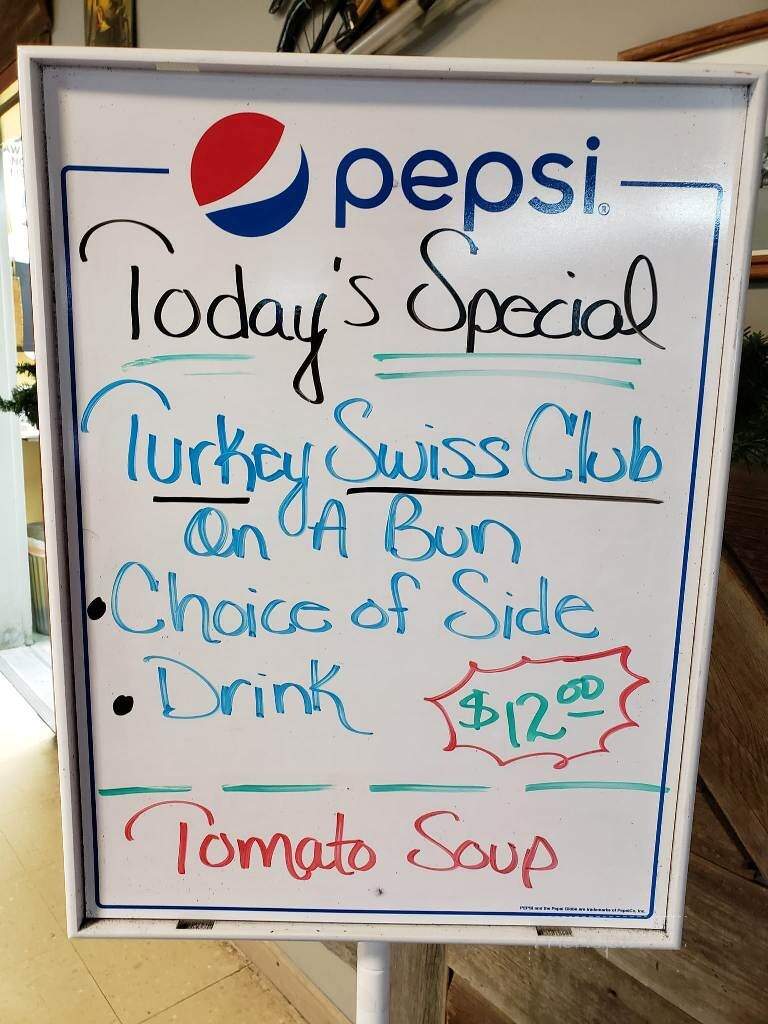 pepsi®
Today's Special
Turkey Swiss Club
On A Bun
• Choice of Side
• Drink
$12.00
Tomato Soup
PEPSI and the Pepsi Globe are trademarks of PepsiCo, Inc.